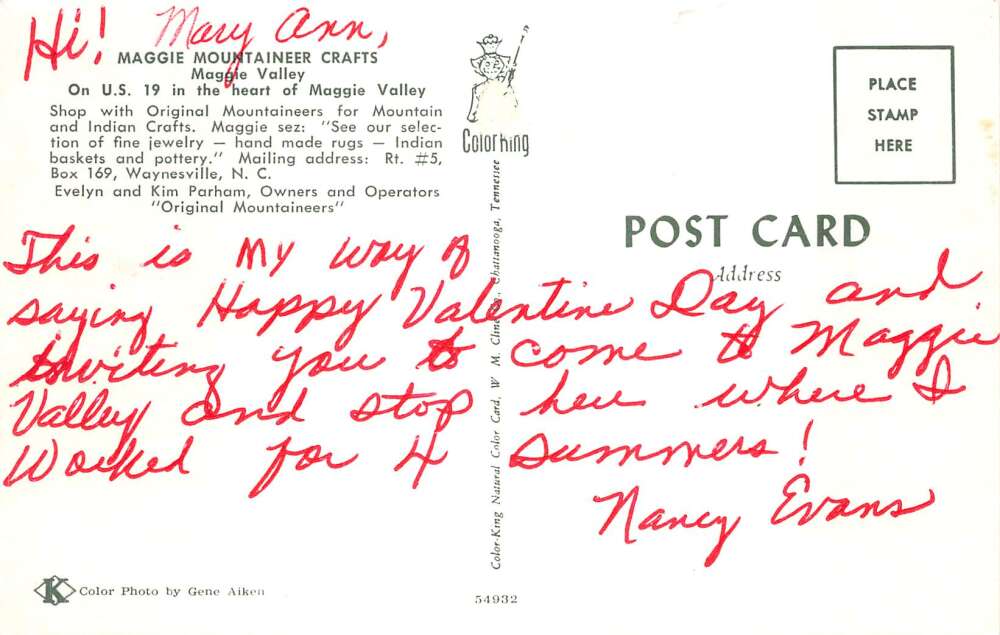 Hi! Mary Ann,
MAGGIE MOUNTAINEER CRAFTS
Maggie Valley
On U.S. 19 in the heart of Maggie Valley
Shop with Original Mountaineers for Mountain
and Indian Crafts. Maggie sez: "See our selec-
tion of fine jewelry — hand made rugs — Indian
baskets and pottery." Mailing address: Rt. #5,
Box 169, Waynesville, N. C.
Evelyn and Kim Parham, Owners and Operators
"Original Mountaineers"
This is My way of
saying Happy Valentine Day and
inviting you to come to Maggie
Valley and stop here where I
Worked for 4 summers!
Nancy Evans
Color King
Color-King Natural Color Card, W. M. Cline Co., Chattanooga, Tennessee
PLACE
STAMP
HERE
POST CARD
Address
K Color Photo by Gene Aiken
54932